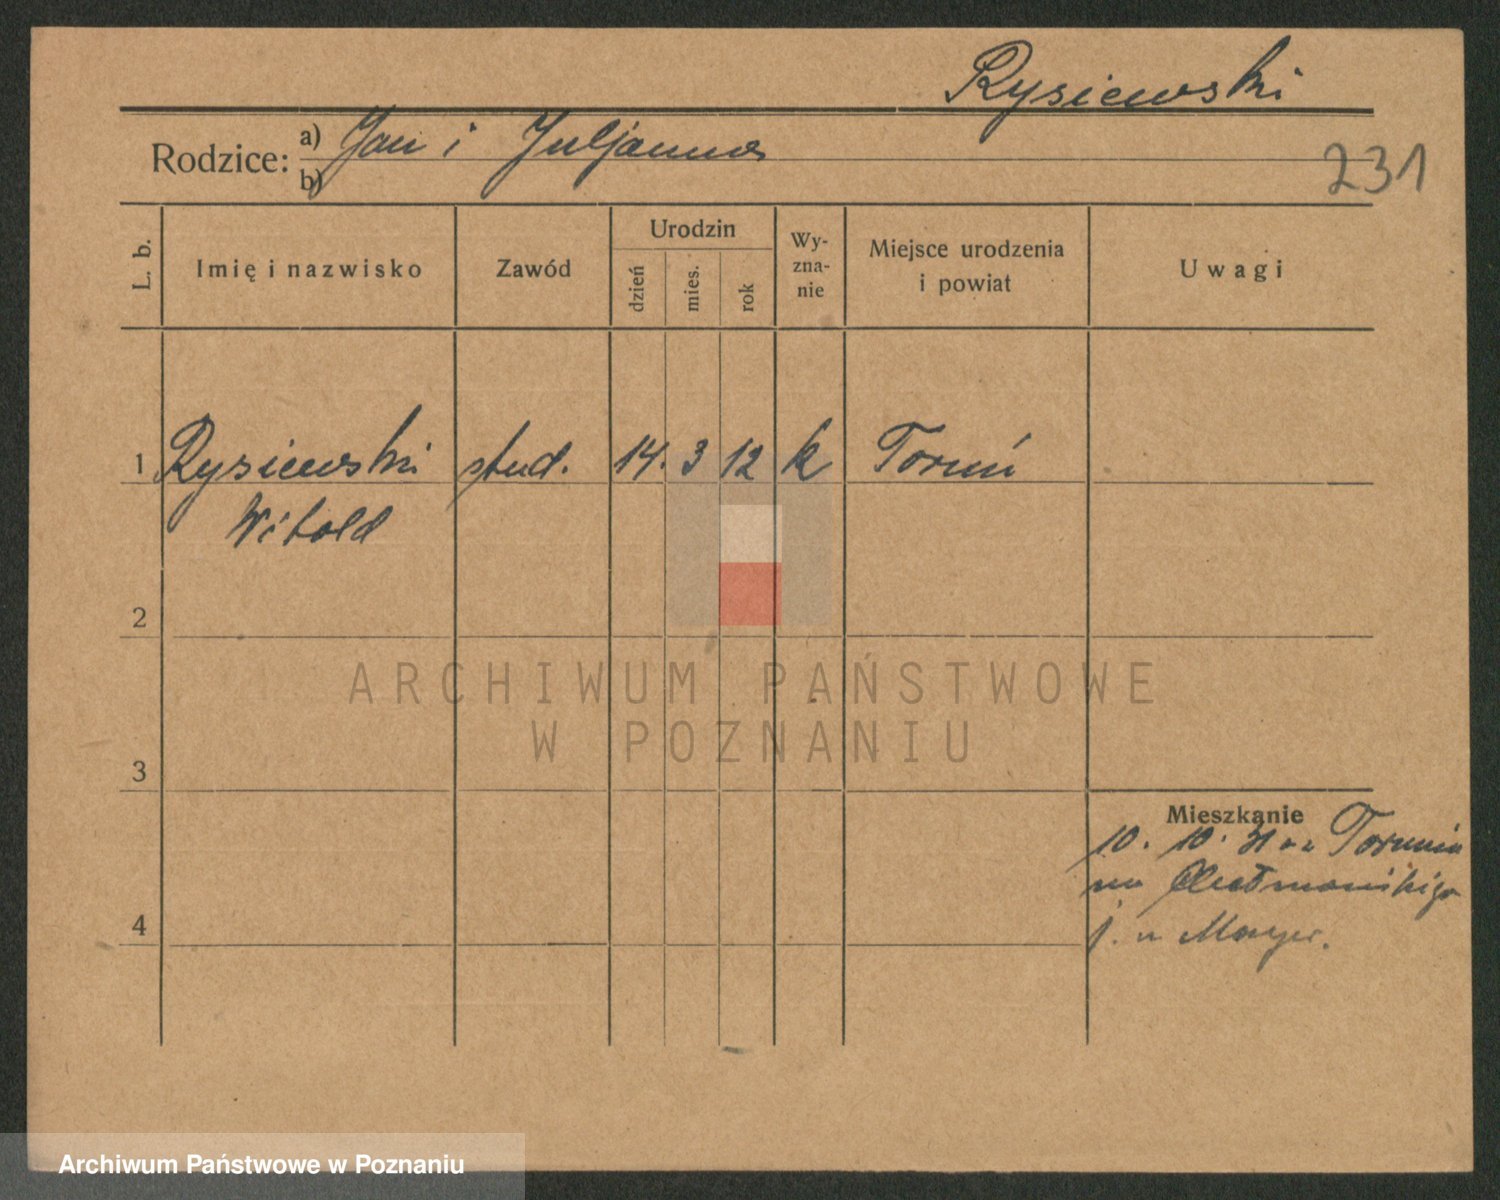 Rysiewski
Rodzice: a) Jan i Juljanna
b)
231
L. b. Imię i nazwisko Zawód Urodzin dzień mies. rok Wy-zna-nie Miejsce urodzenia i powiat Uwagi
1 Rysiewski stud. 14. 3 12 k Toruń
Witold
2
3
Mieszkanie
10. 10. 31 z Torunia
na
4
ARCHIWUM PAŃSTWOWE
W POZNANIU
Archiwum Państwowe w Poznaniu